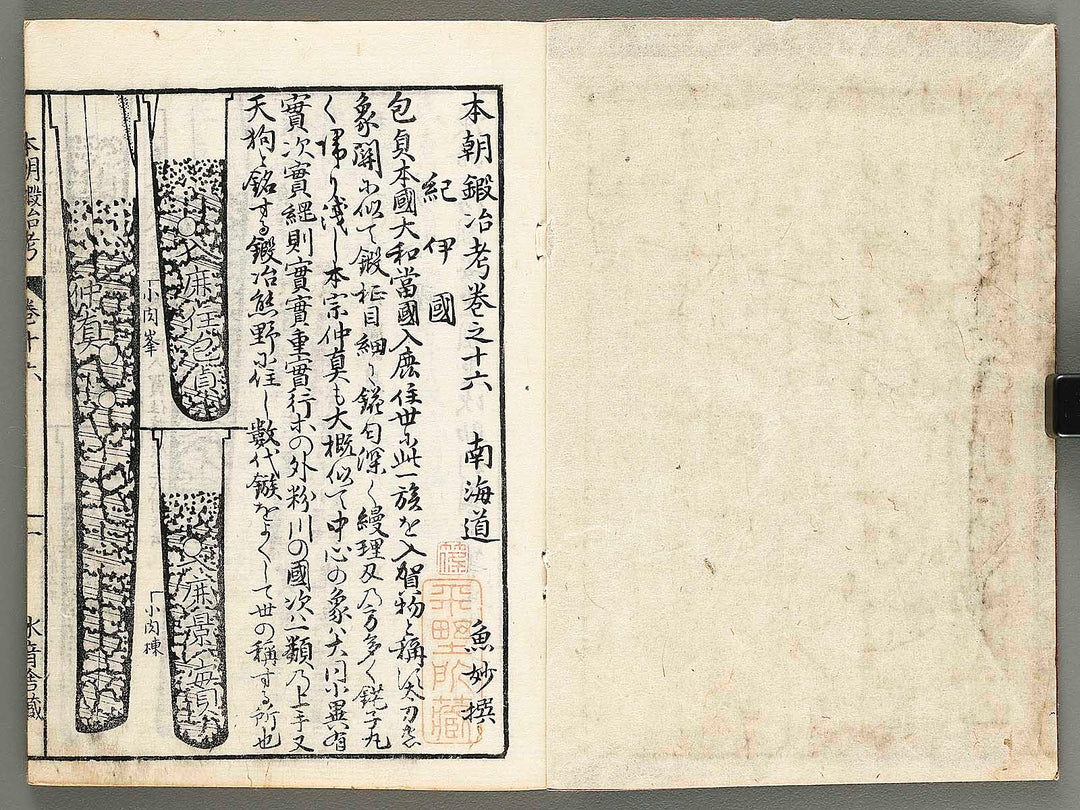 本朝鍛冶考巻之十六 南海道 魚妙撰
紀伊國
包貞本國大和當國入鹿住世に此一族を入賀物と稱須太刀
象開に似て鍛柾目細く鎰匂深く縵理及乃方多く鋩子丸
く帰り浅し本宗仲真も大概似て中心の象八大同小異有
實次實綱則實實重實行ホの外粉川の國次ハ類乃上手又
天狗と銘する鍛冶熊野に住し數代鏃をよくして世の稱する所也
入鹿住包貞
小肉峯
入鹿景貞
小肉棟
仲真
本朝鍛冶考 巻十六 一 水音舎藏
野所藏